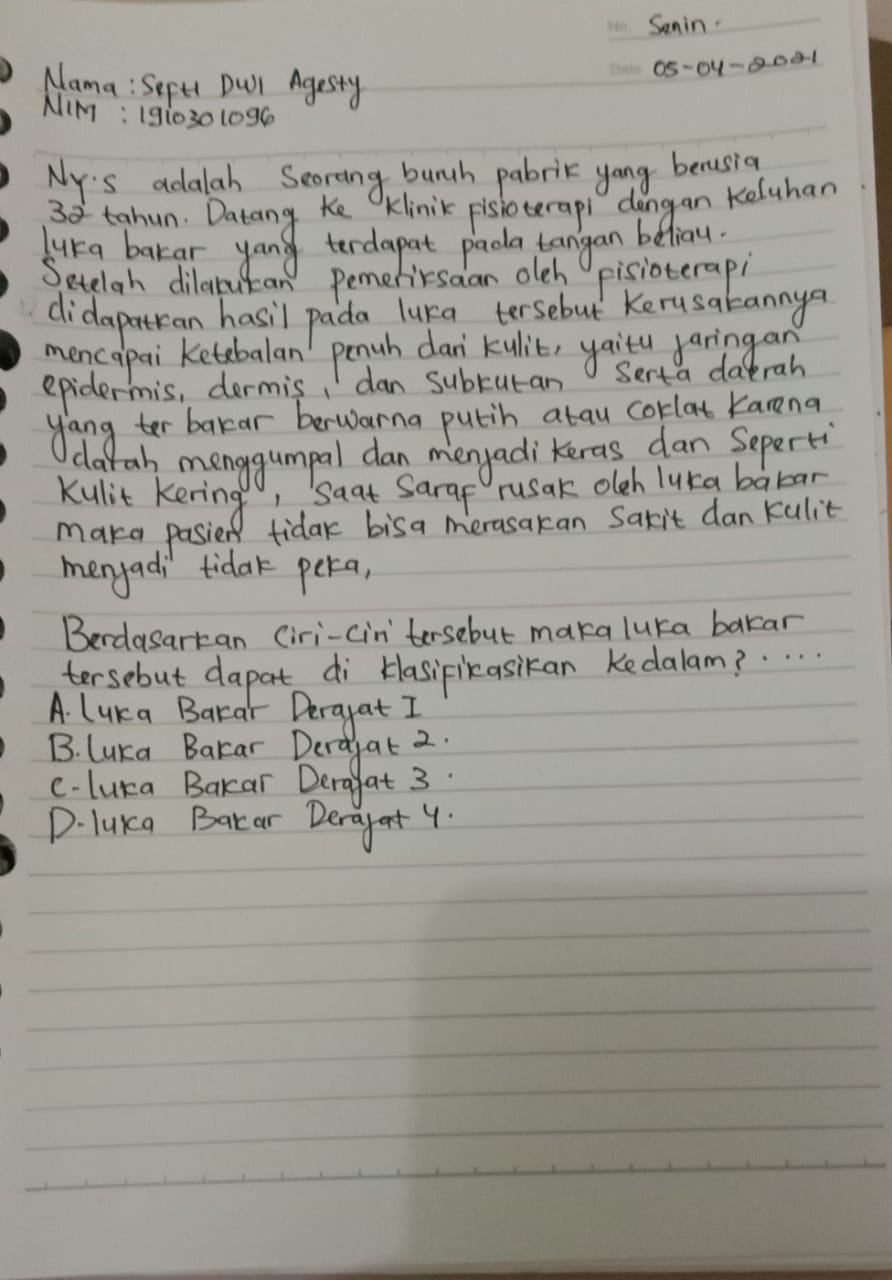 No. Senin.
Date 05-04-2021
Nama : Septi DWI Agesty
NIM : 1910301096
Ny.S adalah Seorang buruh pabrik yang berusia
32 tahun. Datang ke klinik fisioterapi dengan keluhan
luka bakar yang terdapat pada tangan beliau.
Setelah dilakukan pemeriksaan oleh fisioterapi
didapatkan hasil pada luka tersebut kerusakannya
mencapai ketebalan penuh dari kulit, yaitu jaringan
epidermis, dermis, dan subkutan serta daerah
yang ter bakar berwarna putih atau coklat karena
darah menggumpal dan menjadi keras dan seperti
kulit kering, saat saraf rusak oleh luka bakar
maka pasien tidak bisa merasakan sakit dan kulit
menjadi tidak peka,
Berdasarkan ciri-ciri tersebut maka luka bakar
tersebut dapat di klasifikasikan kedalam? ....
A. Luka Bakar Derajat I
B. Luka Bakar Derajat 2.
C- luka Bakar Derajat 3.
D- luka Bakar Derajat 4.